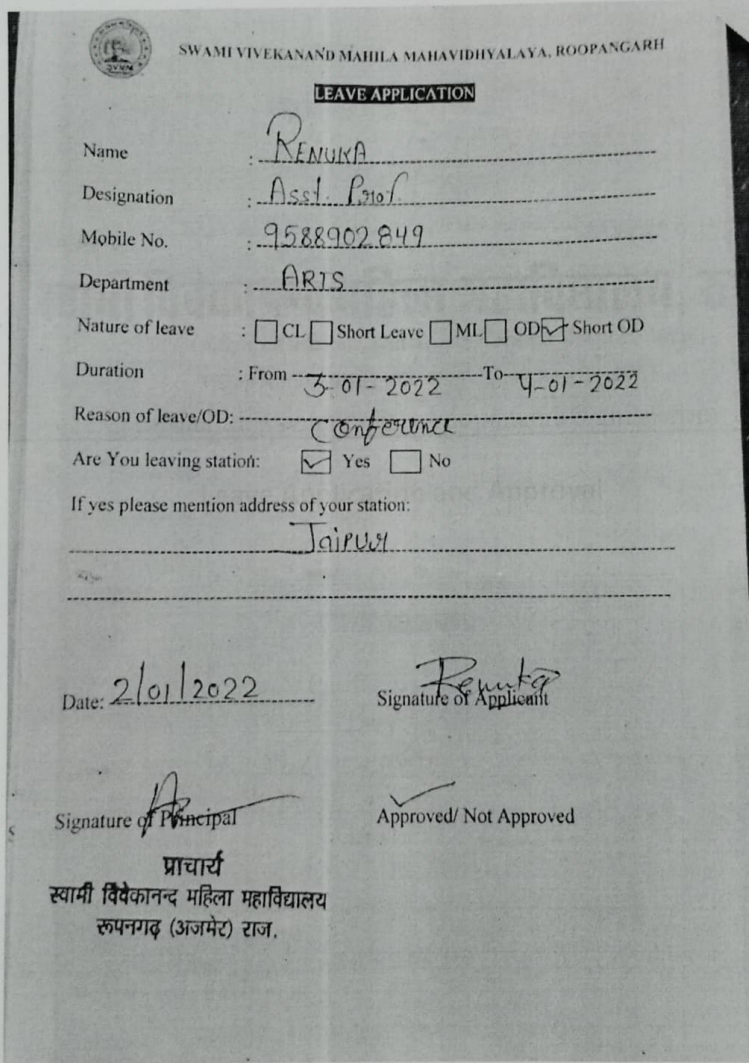 SWAMI VIVEKANAND MAHILA MAHAVIDHYALAYA, ROOPANGARH
LEAVE APPLICATION
Name : RENUKA
Designation : Asst. Prof.
Mobile No. : 9588902849
Department : ARTS
Nature of leave : CL Short Leave ML OD Short OD
Duration : From 3-01-2022 To 4-01-2022
Reason of leave/OD: Conference
Are You leaving station: Yes No
If yes please mention address of your station:
Jaipur
Date: 2/01/2022 Renuka
Signature of Applicant
Signature of Principal Approved/ Not Approved
प्राचार्य
स्वामी विवेकानन्द महिला महाविद्यालय
रूपनगढ़ (अजमेर) राज.